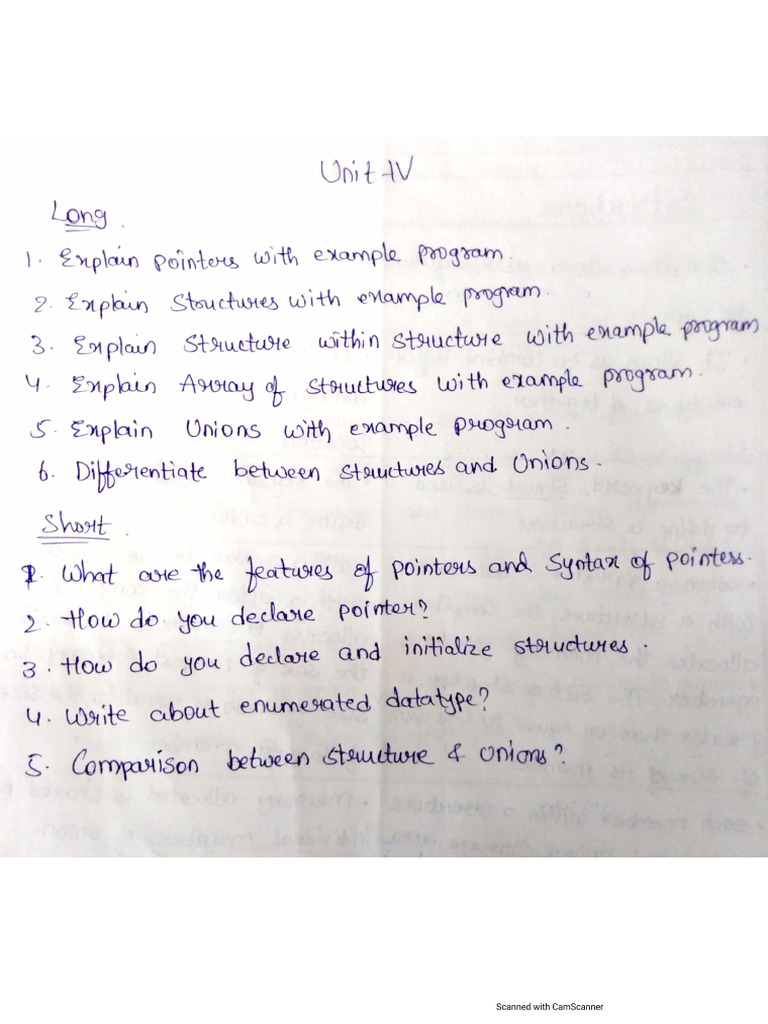 Unit-IV
Long.
1. Explain pointers with example program.
2. Explain Structures with example program.
3. Explain Structure within structure with example program
4. Explain Array of structures with example program.
5. Explain Unions with example program.
6. Differentiate between structures and Unions.
Short.
1. What are the features of pointers and Syntax of pointers.
2. How do you declare pointer?
3. How do you declare and initialize structures.
4. Write about enumerated datatype?
5. Comparison between structure & Unions?
Scanned with CamScanner